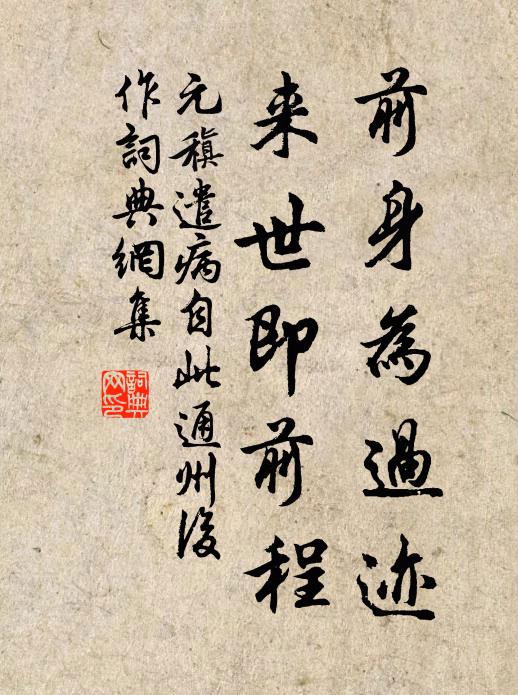 前身為過迹
来世即前程
元稹遣病自此通州後
作詞典網集
詞典網印